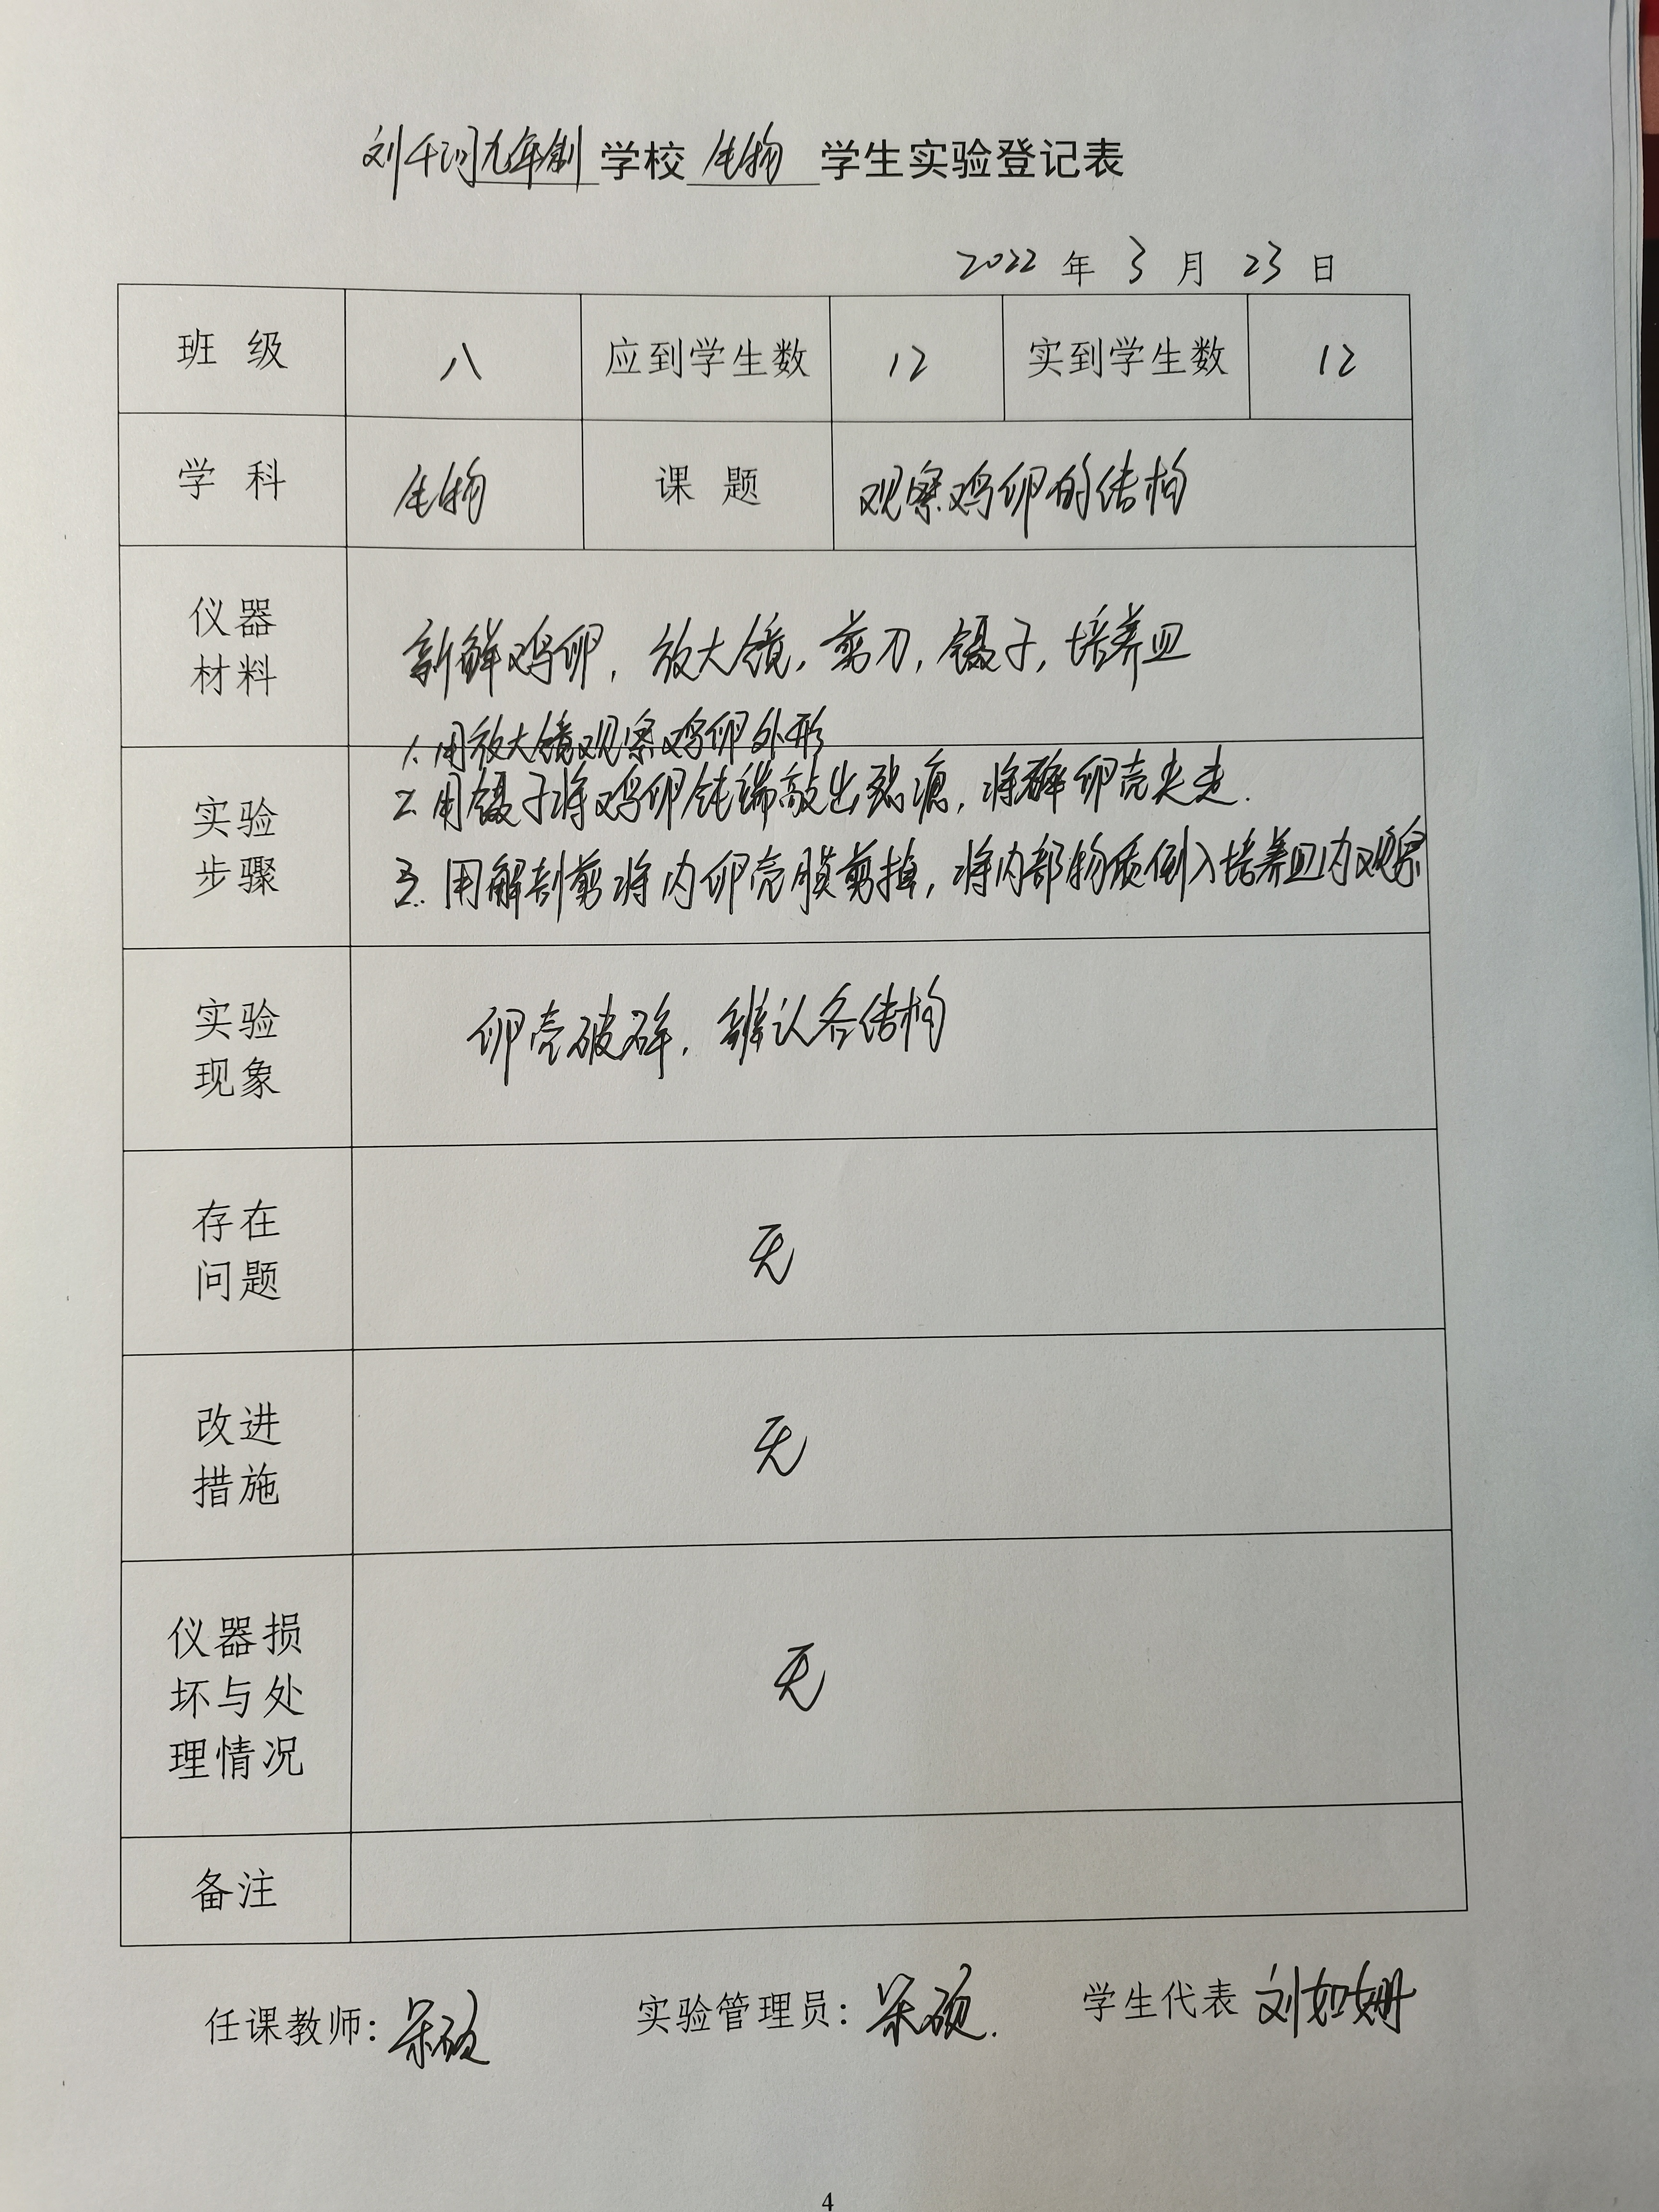 刘千河九年制学校生物学生实验登记表
2022年3月23日
班级 八 应到学生数 12 实到学生数 12
学科 生物 课题 观察鸡卵的结构
仪器
材料
新鲜鸡卵，放大镜，剪刀，镊子，培养皿
实验
步骤
1. 用放大镜观察鸡卵外形
2. 用镊子将鸡卵钝端敲出裂痕，将碎卵壳夹走.
3. 用解剖剪将内卵壳膜剪掉，将内部物质倒入培养皿内观察
实验
现象
卵壳破碎，辨认各结构
存在
问题
无
改进
措施
无
仪器损
坏与处
理情况
无
备注
任课教师: 实验管理员: 学生代表 刘如姗
4